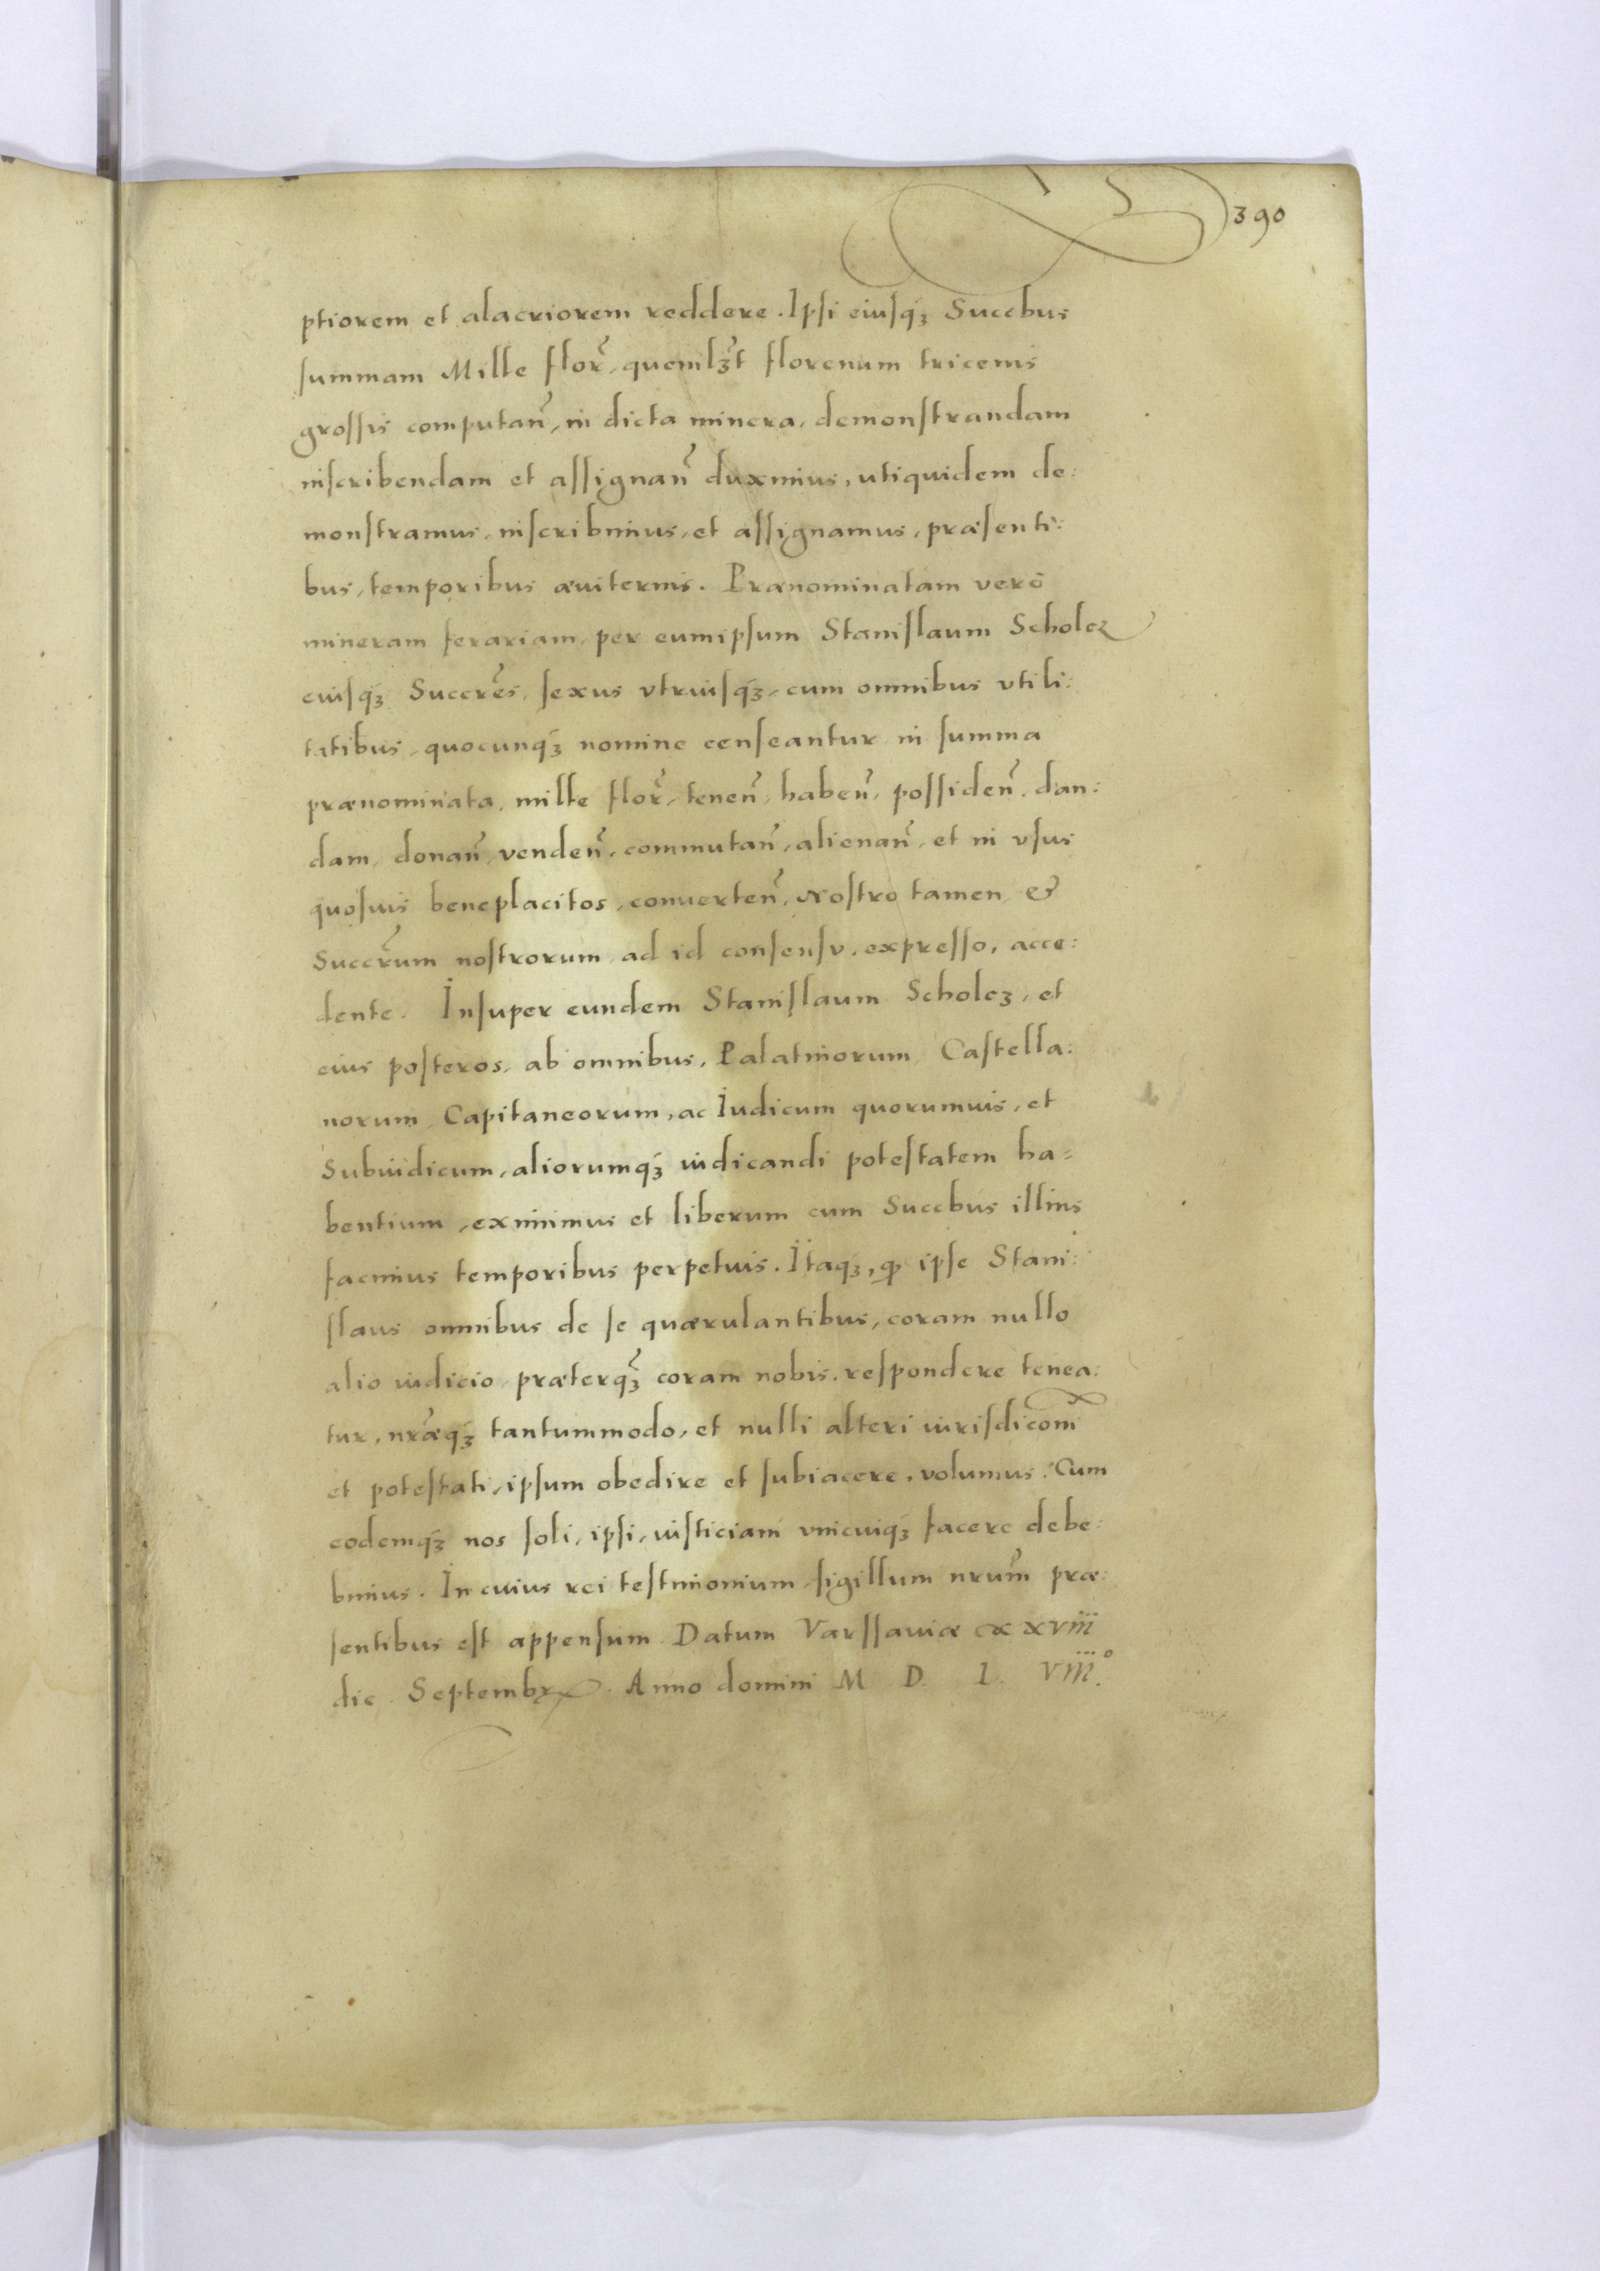 390
ptiorem et alacriorem reddere. Ipsi eiusqꝫ Succbus
summam Mille flor̃, quemlꝫt florenum tricenis
grossis computañ, in dicta minera, demonstrandam
inscribendam et assignañ duximus, utiquidem de:
monstramus, inscribimus, et assignamus, præsenti:
bus, temporibus æuiternis. Prænominatam verò
mineram ferariam, per eumipsum Stanislaum Scholcz
eiusqꝫ Succr̃es, sexus vtriusqꝫ, cum omnibus vtili:
tatibus, quocunqꝫ nomine censeantur in summa
prænominata, mille flor̃, teneñ, habeñ, possideñ, dan:
dam, donañ, vendeñ, commutañ, alienañ, et in vsus
quosuis beneplacitos, conuerteñ, Nostro tamen, &
Succr̃um nostrorum, ad id consensv, expresso, acce:
dente. Insuper eundem Stanislaum Scholcz, et
eius posteros, ab omnibus, Palatinorum, Castella:
norum, Capitaneorum, ac Iudicum quorumuis, et
Subiudicum, aliorumqꝫ iudicandi potestatem ha-
bentium, eximimus et liberum cum Succbus illius
facimus temporibus perpetuis. Itaqꝫ, ꝙ ipse Stani:
slaus omnibus de se quærulantibus, coram nullo
alio iudicio, præterqꝫ̃ coram nobis, respondere tenea:
tur, nr̃æqꝫ tantummodo, et nulli alteri iurisdicoñi
et potestati, ipsum obedire et subiacere, volumus. Cum
eodemqꝫ nos soli, ipsi, iusticiam vnicuiqꝫ facere debe:
bimus. In cuius rei testimonium sigillum nrũm præ:
sentibus est appensum. Datum Varssauiæ xxviii
die Septembr. Anno domini M D. L. VIII°.